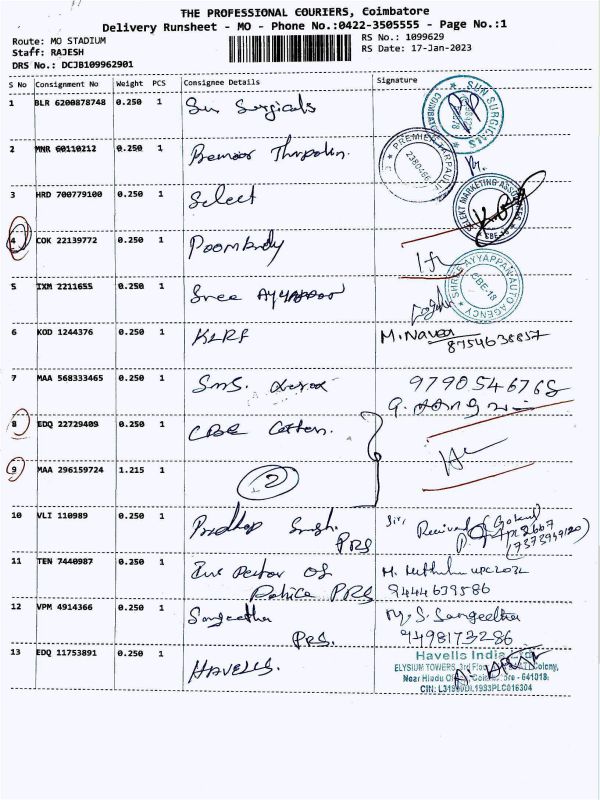 THE PROFESSIONAL COURIERS, Coimbatore
Delivery Runsheet - MO - Phone No.:0422-3505555 - Page No.:1
Route: MO STADIUM
Staff: RAJESH
DRS No.: DCJB109962901
RS No.: 1099629
RS Date: 17-Jan-2023
S No Consignment No Weight PCS Consignee Details Signature
1 BLR 6200878748 0.250 1 Sun Surgicals
SUN SURGICALS
2 MNR 60110212 0.250 1
PREMIER TARPAULIN
2380466
3 HRD 700779100 0.250 1 Select
MARKETING
CBE-18
4 COK 22139772 0.250 1
5 IXM 2211655 0.250 1 Sree Ayyappan
AYYAPPAN AUTO AGENCY
CBE-18
6 KOD 1244376 0.250 1 KLRF M. Naveen
8754636857
7 MAA 568333465 0.250 1 SMS. 9790546768
8 EDQ 22729409 0.250 1 Cotton.
9 MAA 296159724 1.215 1
2
10 VLI 110989 0.250 1 Pradhap Singh. Sir, Received
PRS
11 TEN 7440987 0.250 1 Ins Pector OF
Police PRS
9444639586
12 VPM 4914366 0.250 1 Sangeetha
PRS. S. Sangeetha
9498173286
13 EDQ 11753891 0.250 1 HAVELLS.
Havells India
ELYSIUM TOWERS, 3rd Floor Colony,
Near Hindu Coimbatore - 641018.